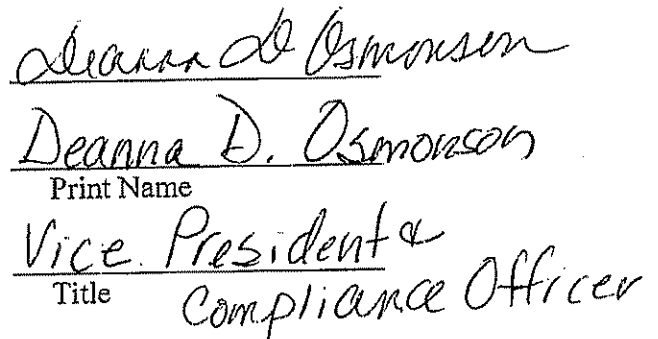 Deanna D Osmonson
Deanna D. Osmonson
Print Name
Vice President &
Title
Compliance Officer